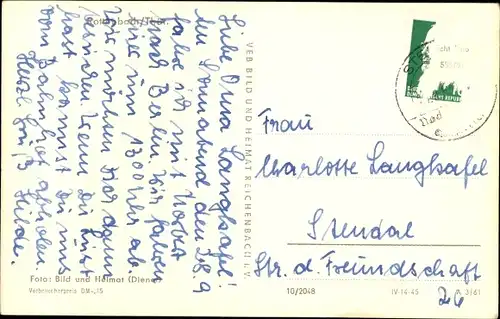 Rottenbach/Thür.
Liebe Oma Langhafel!
Am Sonnabend den 28.9
fahre ich mit Norbert
nach Berlin. Wir fahren
hier um 1300 Uhr ab.
Wir möchten Dir gern
Wenn Du Lust
hast kannst Du uns
vom Bahnhof abholen.
Herzl. Grüße
Hilde.
Foto: Bild und Heimat (Diener)
Verbraucherpreis DM -,15
VEB BILD UND HEIMAT REICHENBACH i. V.
Bad
Frau
Charlotte Langhafel
Stendal
Str. d. Freundschaft
26
10/2048
IV-14-45 A 3/61